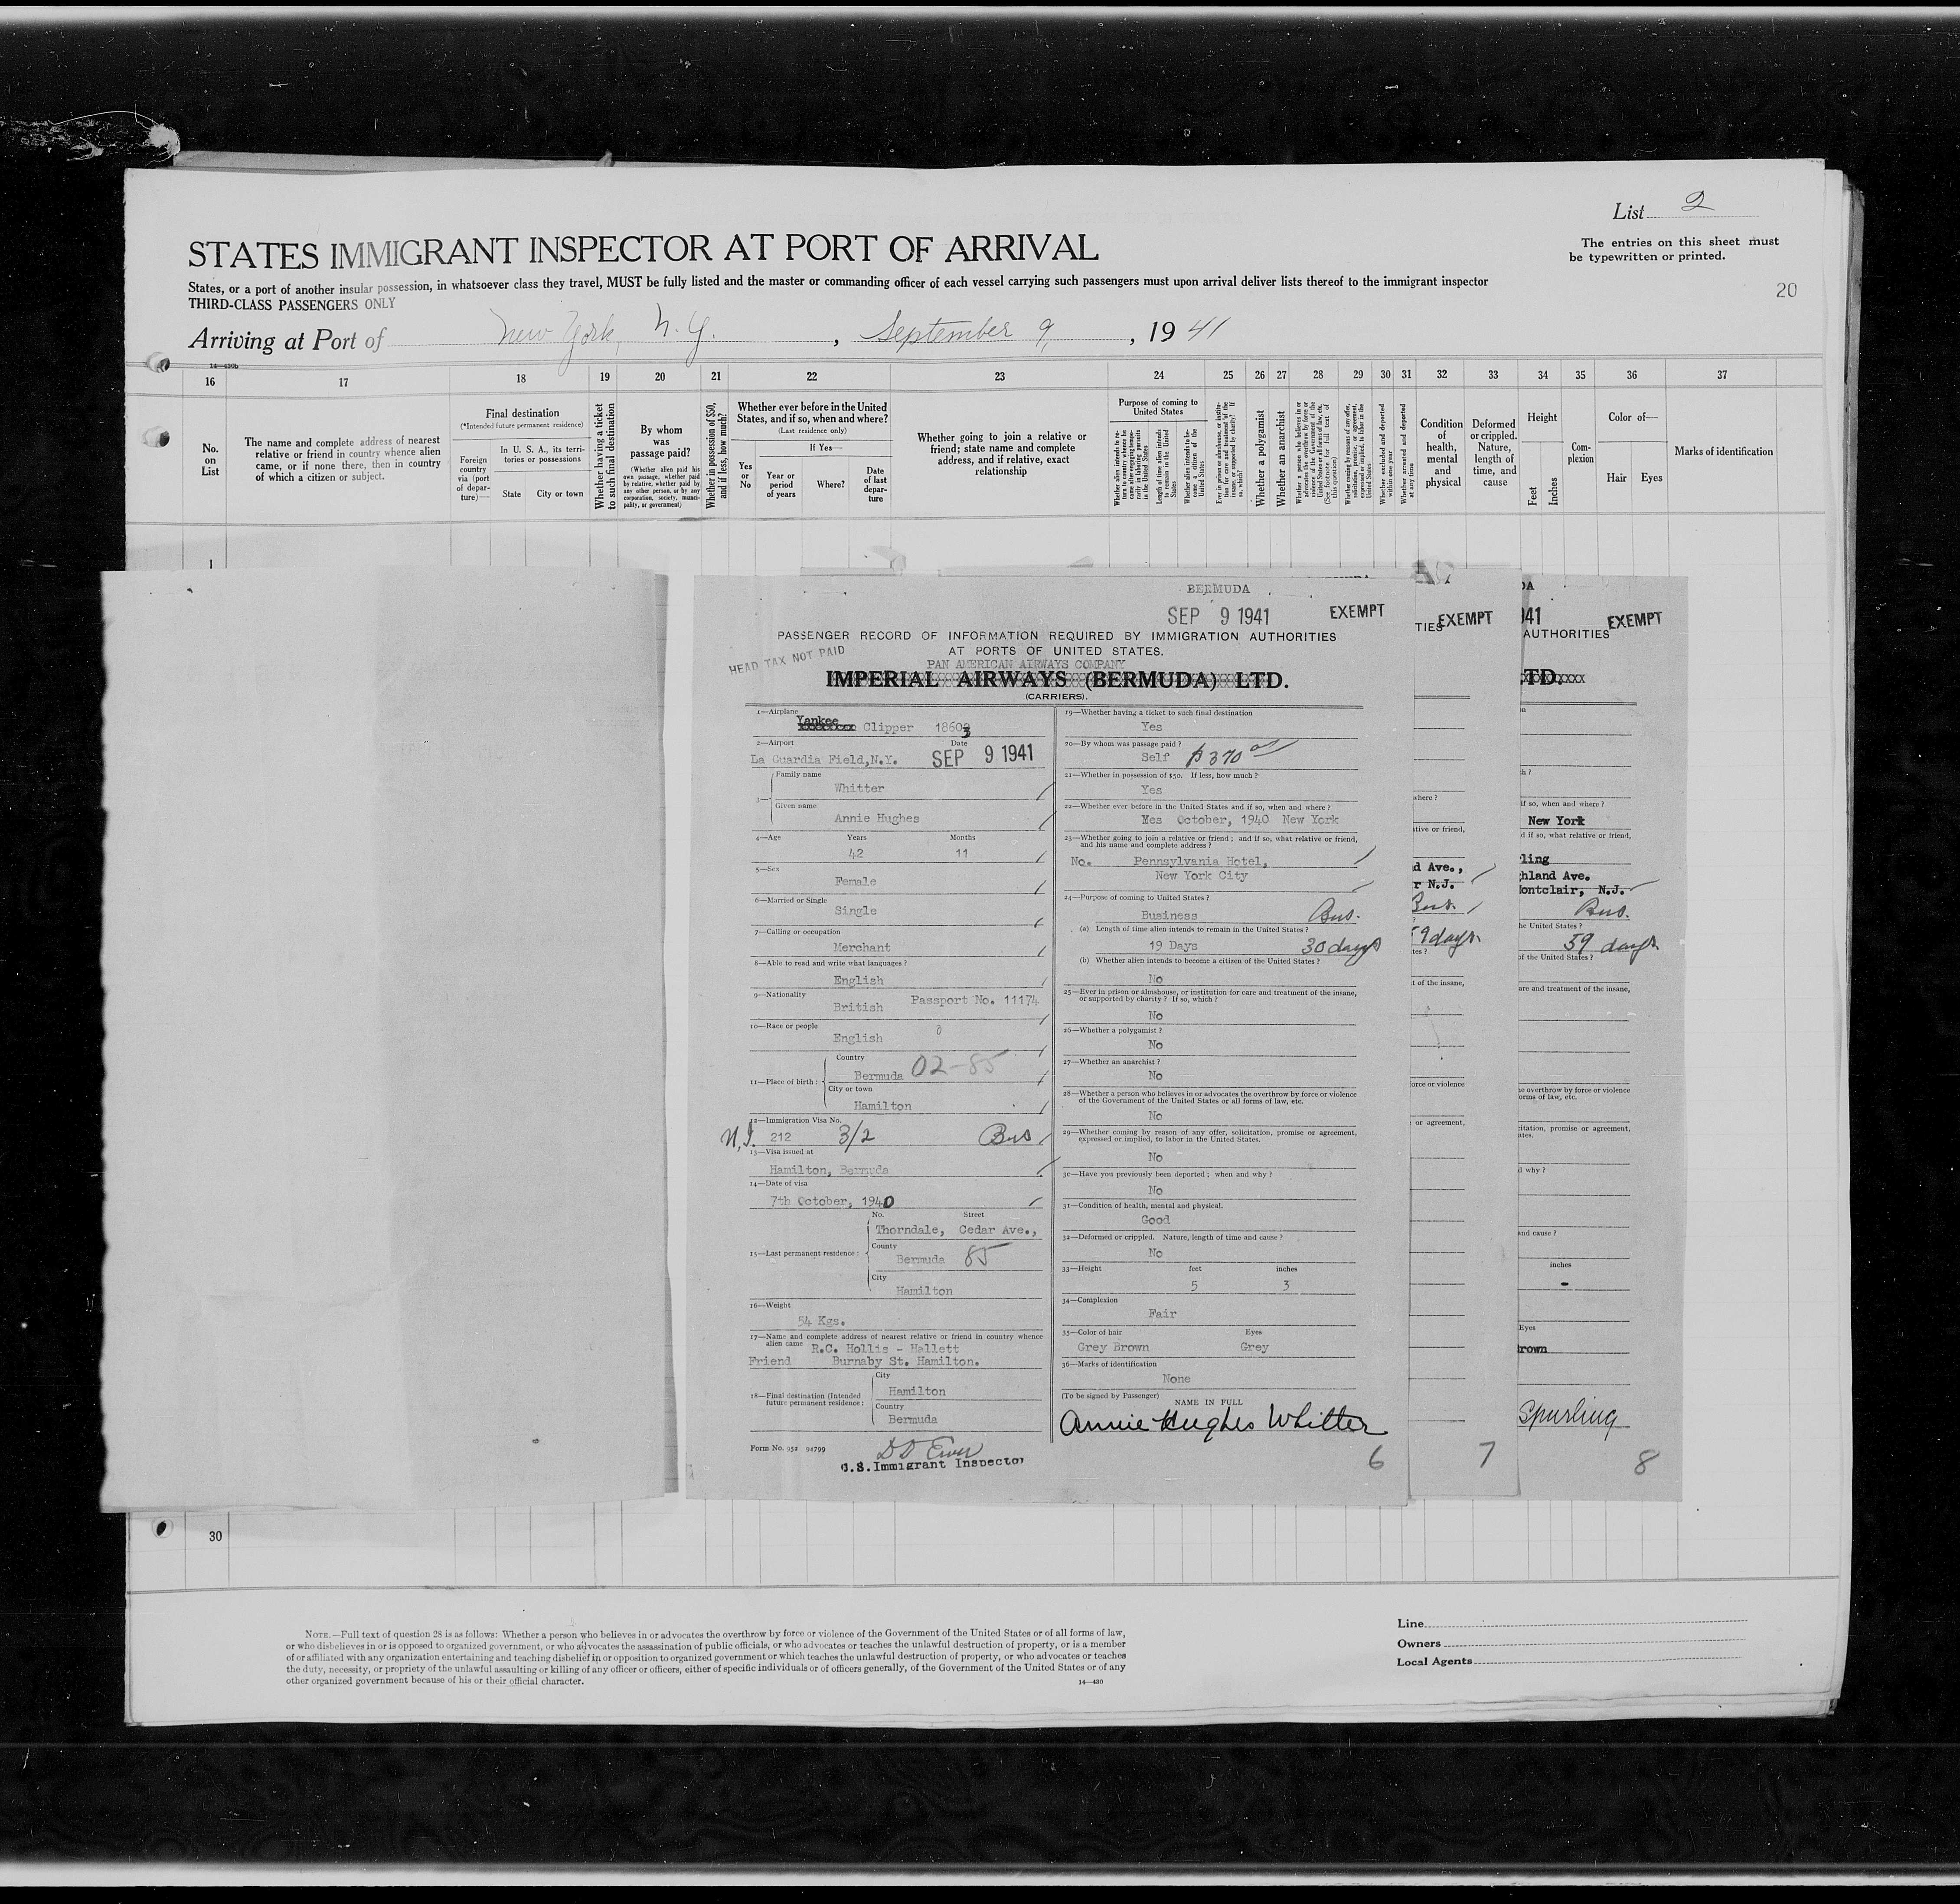 List 2
STATES IMMIGRANT INSPECTOR AT PORT OF ARRIVAL
The entries on this sheet must
be typewritten or printed.
States, or a port of another insular possession, in whatsoever class they travel, MUST be fully listed and the master or commanding officer of each vessel carrying such passengers must upon arrival deliver lists thereof to the immigrant inspector
THIRD-CLASS PASSENGERS ONLY
20
Arriving at Port of New York, N.Y. , September 9, , 19 41
14—430b
16 17 18 19 20 21 22 23 24 25 26 27 28 29 30 31 32 33 34 35 36 37
No. on List
The name and complete address of nearest relative or friend in country whence alien came, or if none there, then in country of which a citizen or subject.
Final destination
(*Intended future permanent residence)
Foreign country via (port of departure)—
In U. S. A., its territories or possessions
State City or town
Whether having a ticket to such final destination
By whom was passage paid?
(Whether alien paid his own passage, whether paid by relative, whether paid by any other person, or by any corporation, society, municipality, or government)
Whether in possession of $50, and if less, how much?
Whether ever before in the United States, and if so, when and where?
(Last residence only)
If Yes—
Yes or No
Year or period of years
Where?
Date of last departure
Whether going to join a relative or friend; state name and complete address, and if relative, exact relationship
Purpose of coming to United States
Length of time alien intends to remain in the United States
Whether alien intends to become a citizen of the United States
Whether a polygamist
Whether an anarchist
Whether excluded and deported within one year
Whether arrested and deported at any time
Condition of health, mental and physical
Deformed or crippled. Nature, length of time, and cause
Height
Feet Inches
Complexion
Color of—
Hair Eyes
Marks of identification
1
BERMUDA
SEP 9 1941 EXEMPT
PASSENGER RECORD OF INFORMATION REQUIRED BY IMMIGRATION AUTHORITIES
AT PORTS OF UNITED STATES.
HEAD TAX NOT PAID
PAN AMERICAN AIRWAYS COMPANY
IMPERIAL AIRWAYS (BERMUDA) LTD.
(CARRIERS).
1—Airplane
Yankee Clipper 18603
2—Airport Date
La Guardia Field,N.Y. SEP 9 1941
3— Family name
Whitter
Given name
Annie Hughes
4—Age Years Months
42 11
5—Sex
Female
6—Married or Single
Single
7—Calling or occupation
Merchant
8—Able to read and write what languages?
English
9—Nationality
British Passport No. 11174
10—Race or people
English
11—Place of birth: Country
Bermuda 02-85
City or town
Hamilton
12—Immigration Visa No.
N.I. 212 3/2 Bus
13—Visa issued at
Hamilton, Bermuda
14—Date of visa
7th October, 1940
No. Street
Thorndale, Cedar Ave.,
15—Last permanent residence: County
Bermuda 85
City
Hamilton
16—Weight
54 Kgs.
17—Name and complete address of nearest relative or friend in country whence
alien came R.C. Hollis - Hallett
Friend Burnaby St. Hamilton.
18—Final destination (Intended future permanent residence: City
Hamilton
Country
Bermuda
Form No. 952 94799
U.S. Immigrant Inspector
19—Whether having a ticket to such final destination
Yes
20—By whom was passage paid?
Self $370 00
21—Whether in possession of $50. If less, how much?
Yes
22—Whether ever before in the United States and if so, when and where?
Yes October, 1940 New York
23—Whether going to join a relative or friend; and if so, what relative or friend,
and his name and complete address?
No. Pennsylvania Hotel,
New York City
24—Purpose of coming to United States?
Business Bus.
(a) Length of time alien intends to remain in the United States?
19 Days 30 days
(b) Whether alien intends to become a citizen of the United States?
No
25—Ever in prison or almshouse, or institution for care and treatment of the insane,
or supported by charity? If so, which?
No
26—Whether a polygamist?
No
27—Whether an anarchist?
No
28—Whether a person who believes in or advocates the overthrow by force or violence
of the Government of the United States or all forms of law, etc.
No
29—Whether coming by reason of any offer, solicitation, promise or agreement,
expressed or implied, to labor in the United States.
No
30—Have you previously been deported; when and why?
No
31—Condition of health, mental and physical.
Good
32—Deformed or crippled. Nature, length of time and cause?
No
33—Height feet inches
5 3
34—Complexion
Fair
35—Color of hair Eyes
Grey Brown Grey
36—Marks of identification
None
(To be signed by Passenger)
NAME IN FULL
Annie Hughes Whitter
6
TIES EXEMPT
where?
ative or friend,
d Ave.,
r N.J.
Bus.
59 days
tes?
t of the insane,
force or violence
or agreement,
7
DA
941 EXEMPT
AUTHORITIES
TD.
h?
if so, when and where?
New York
d if so, what relative or friend,
rling
ghland Ave.
Montclair, N.J.
Bus.
he United States?
59 days
of the United States?
are and treatment of the insane,
e overthrow by force or violence
orms of law, etc.
citation, promise or agreement,
ates.
d why?
and cause?
inches
-
Eyes
rown
Spurling
8
30
NOTE.—Full text of question 28 is as follows: Whether a person who believes in or advocates the overthrow by force or violence of the Government of the United States or of all forms of law,
or who disbelieves in or is opposed to organized government, or who advocates the assassination of public officials, or who advocates or teaches the unlawful destruction of property, or is a member
of or affiliated with any organization entertaining and teaching disbelief in or opposition to organized government or which teaches the unlawful destruction of property, or who advocates or teaches
the duty, necessity, or propriety of the unlawful assaulting or killing of any officer or officers, either of specific individuals or of officers generally, of the Government of the United States or of any
other organized government because of his or their official character.
14—430
Line
Owners
Local Agents